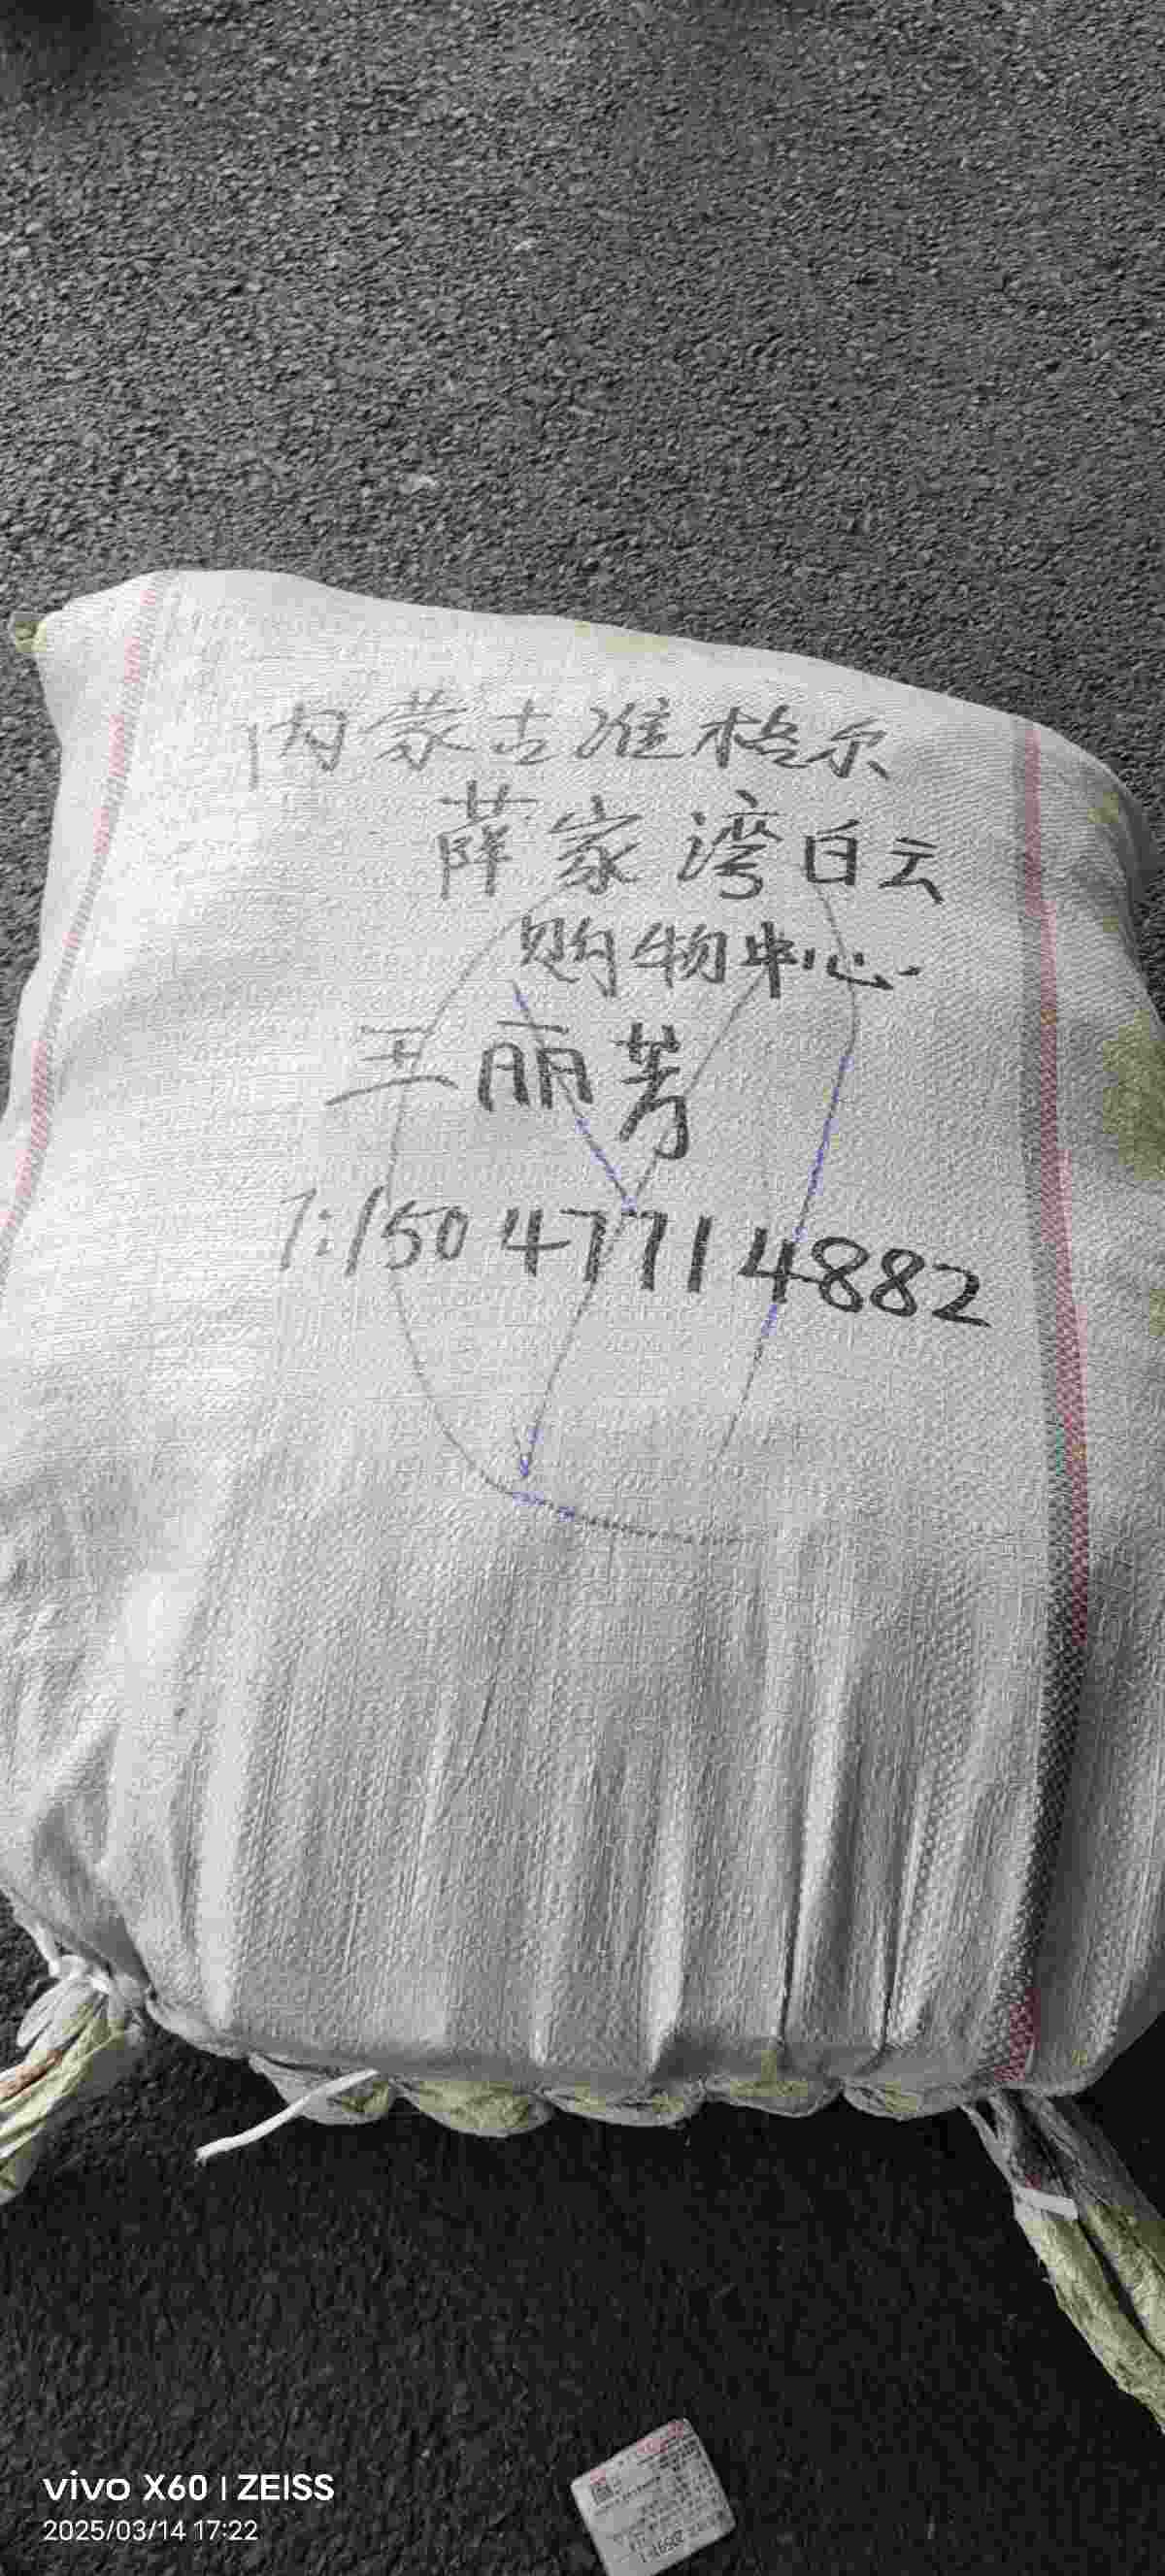 内蒙古准格尔
薛家湾白云
购物中心
王丽芳
T:15047714882
vivo X60 | ZEISS
2025/03/14 17:22